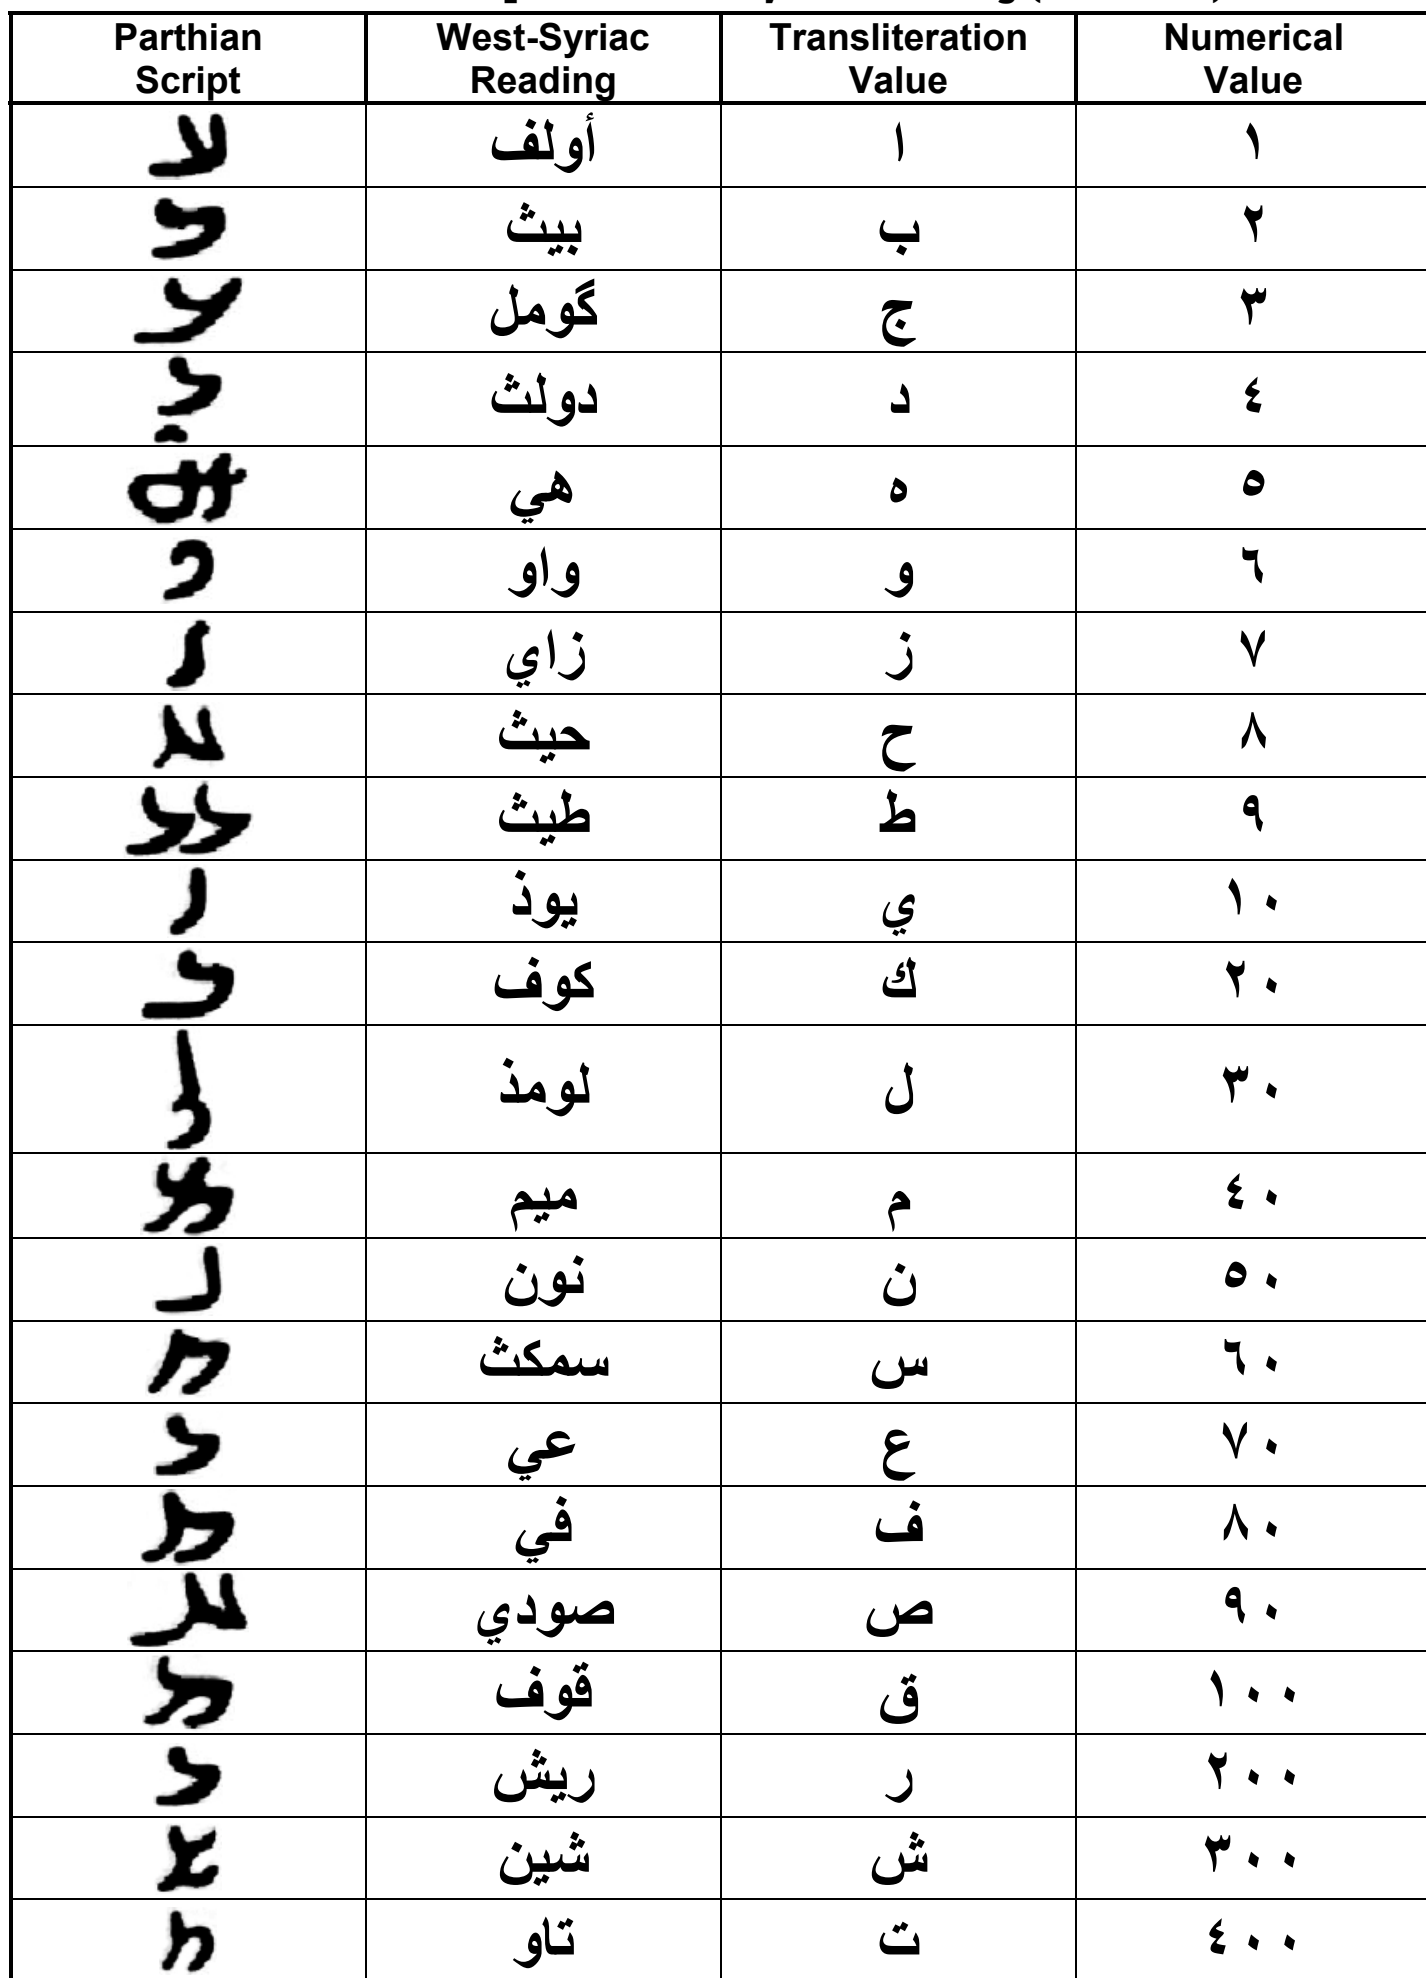 Parthian Script West-Syriac Reading Transliteration Value Numerical Value
أولف ا ١
بيث ب ٢
گومل ج ٣
دولث د ٤
هي ه ٥
واو و ٦
زاي ز ٧
حيث ح ٨
طيث ط ٩
يوذ ي ١٠
كوف ك ٢٠
لومذ ل ٣٠
ميم م ٤٠
نون ن ٥٠
سمكث س ٦٠
عي ع ٧٠
في ف ٨٠
صودي ص ٩٠
قوف ق ١٠٠
ريش ر ٢٠٠
شين ش ٣٠٠
تاو ت ٤٠٠